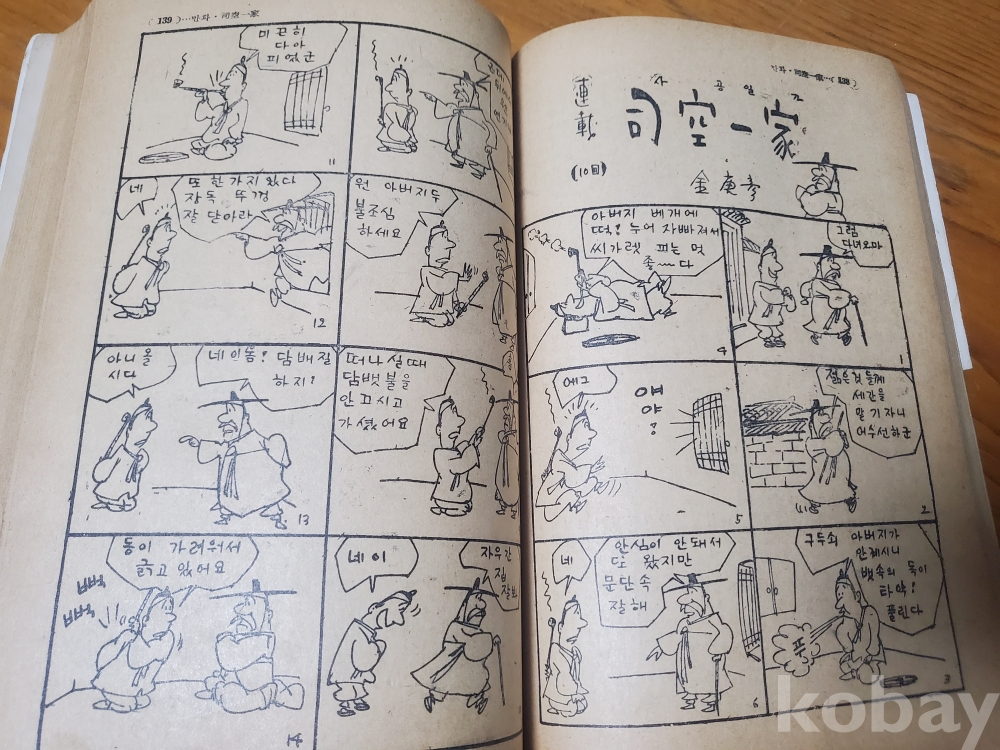 만화·司空一家…( 138 )
連載
사공일가
司空一家
(10回)
金庚彥
그럼
다녀오마
1
젊은 것들께
세간을
맡기자니
어수선하군
2
구두쇠 아버지가
안계시니
뱃속의 독이
타악!
풀린다
푸
3
아버지 베개에
떡! 누어 자빠져서
씨가렛 피는 멋
좋──다
4
에그
얘
야!
5
네
안심이 안돼서
또 왔지만
문단속
잘해
6
( 139 )…만화·司空一家
원 아버지두
불조심
하세요
떠나실때
담뱃불을
안끄시고
가셨어요
자우간
집
잘보
네이
미끈히
다아
피었군
11
또 한가지 있다
자독 뚜껑
잘 닫아라
네
12
네이놈! 담배질
하지!
아니올
시다
13
등이 가려워서
긁고 있어요
벅벅
벅벅
14
kobay